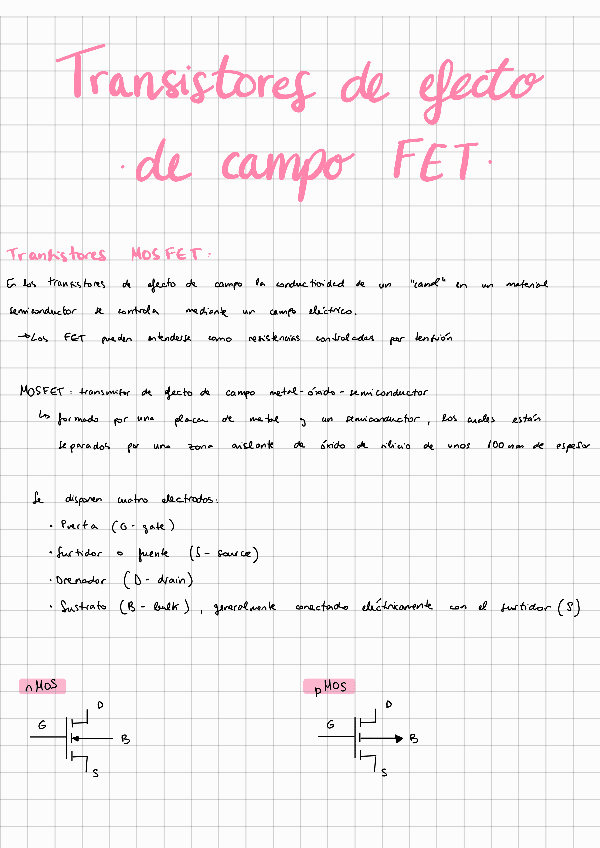 Transistores de efecto
· de campo FET ·
Transistores MOSFET:
En los transistores de efecto de campo la conductividad de un "canal" en un material
semiconductor se controla mediante un campo eléctrico.
→ Los FET pueden entenderse como resistencias controladas por tensión
MOSFET: transmitor de efecto de campo metal-óxido-semiconductor
↳ formado por una placa de metal y un semiconductor, los cuales están
separados por una zona aislante de óxido de silicio de unos 100 nm de espesor
Se disponen cuatro electrodos:
· Puerta (G - gate)
· Surtidor o fuente (S - source)
· Drenador (D - drain)
· Sustrato (B - bulk), generalmente conectado eléctricamente con el surtidor (S)
nMOS pMOS
D D
G G
B B
S S